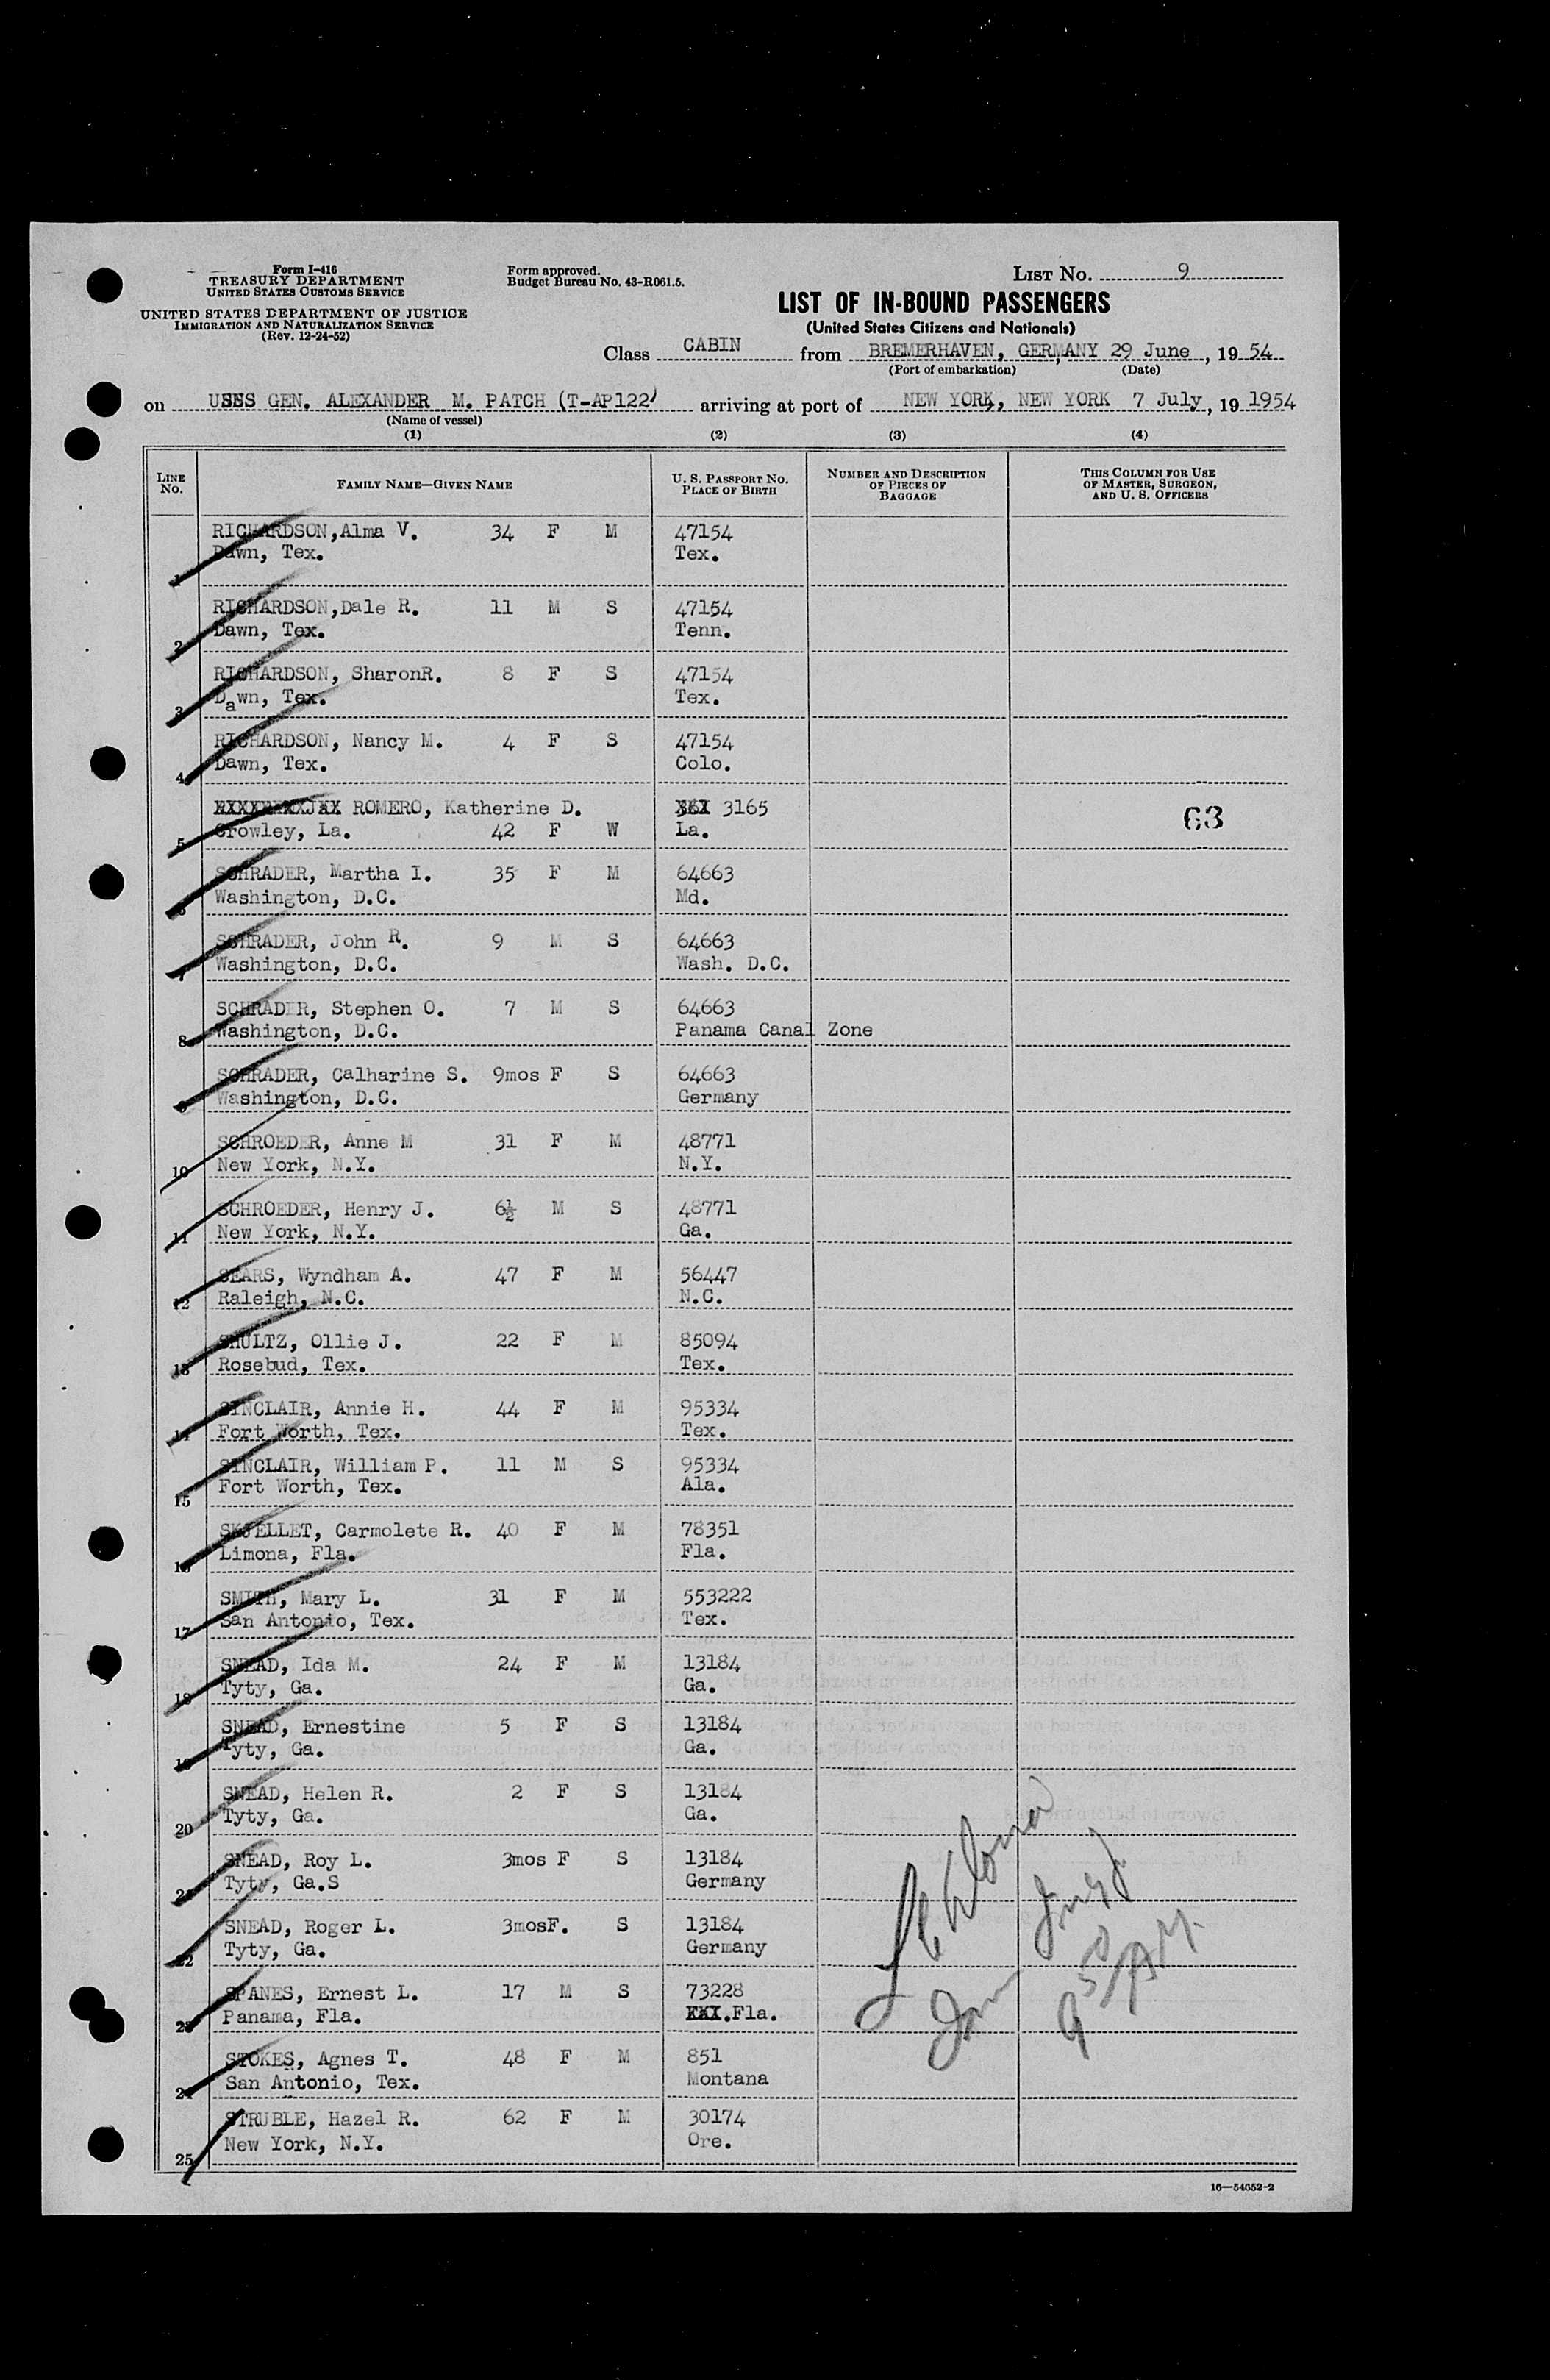 Form I-416
TREASURY DEPARTMENT
UNITED STATES CUSTOMS SERVICE
UNITED STATES DEPARTMENT OF JUSTICE
IMMIGRATION AND NATURALIZATION SERVICE
(Rev. 12-24-52)
Form approved.
Budget Bureau No. 43-R061.5.
LIST No. 9
LIST OF IN-BOUND PASSENGERS
(United States Citizens and Nationals)
Class CABIN from BREMERHAVEN, GERMANY 29 June, 19 54
(Port of embarkation) (Date)
on USNS GEN. ALEXANDER M. PATCH (T-AP122) arriving at port of NEW YORK, NEW YORK 7 July, 19 1954
(Name of vessel)
(1) (2) (3) (4)
LINE No. FAMILY NAME—GIVEN NAME U. S. PASSPORT NO. PLACE OF BIRTH NUMBER AND DESCRIPTION OF PIECES OF BAGGAGE THIS COLUMN FOR USE OF MASTER, SURGEON, AND U. S. OFFICERS
RICHARDSON,Alma V. 34 F M 47154
1 Dawn, Tex. Tex.
RICHARDSON,Dale R. 11 M S 47154
2 Dawn, Tex. Tenn.
RICHARDSON, SharonR. 8 F S 47154
3 Dawn, Tex. Tex.
RICHARDSON, Nancy M. 4 F S 47154
4 Dawn, Tex. Colo.
ROMERO, Katherine D. 3165
5 Crowley, La. 42 F W La. 63
SCHRADER, Martha I. 35 F M 64663
6 Washington, D.C. Md.
SCHRADER, John R. 9 M S 64663
7 Washington, D.C. Wash. D.C.
SCHRADER, Stephen O. 7 M S 64663
8 Washington, D.C. Panama Canal Zone
SCHRADER, Calharine S. 9mos F S 64663
9 Washington, D.C. Germany
SCHROEDER, Anne M 31 F M 48771
10 New York, N.Y. N.Y.
SCHROEDER, Henry J. 6½ M S 48771
11 New York, N.Y. Ga.
SEARS, Wyndham A. 47 F M 56447
12 Raleigh, N.C. N.C.
SHULTZ, Ollie J. 22 F M 85094
13 Rosebud, Tex. Tex.
SINCLAIR, Annie H. 44 F M 95334
14 Fort Worth, Tex. Tex.
SINCLAIR, William P. 11 M S 95334
15 Fort Worth, Tex. Ala.
SKJELLET, Carmolete R. 40 F M 78351
16 Limona, Fla. Fla.
SMITH, Mary L. 31 F M 553222
17 San Antonio, Tex. Tex.
SNEAD, Ida M. 24 F M 13184
18 Tyty, Ga. Ga.
SNEAD, Ernestine 5 F S 13184
19 Tyty, Ga. Ga.
SNEAD, Helen R. 2 F S 13184
20 Tyty, Ga. Ga.
SNEAD, Roy L. 3mos F S 13184
21 Tyty, Ga.S Germany
SNEAD, Roger L. 3mosF. S 13184
22 Tyty, Ga. Germany
SPANES, Ernest L. 17 M S 73228
23 Panama, Fla. Fla.
STOKES, Agnes T. 48 F M 851
24 San Antonio, Tex. Montana
STRUBLE, Hazel R. 62 F M 30174
25 New York, N.Y. Ore.
16—54052-2